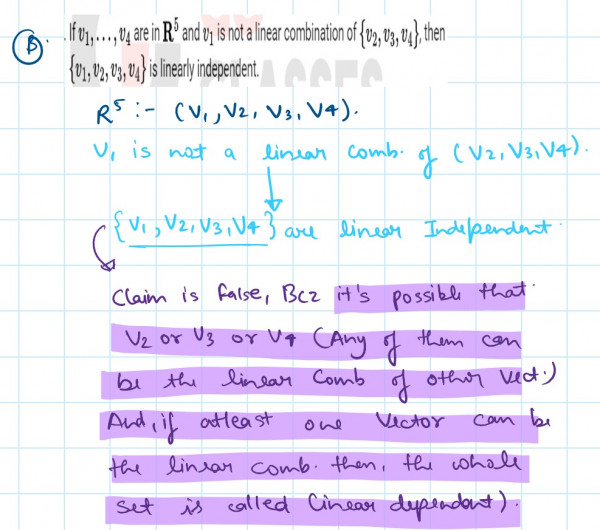 B. If v₁, …, v₄ are in R⁵ and v₁ is not a linear combination of {v₂, v₃, v₄}, then
{v₁, v₂, v₃, v₄} is linearly independent.
R⁵ :- (V₁, V₂, V₃, V₄).
V₁ is not a linear comb. of (V₂, V₃, V₄).
{V₁, V₂, V₃, V₄} are linear Independent.
Claim is false, Bcz it's possible that
V₂ or V₃ or V₄ (Any of them can
be the linear Comb of other vect.)
And, if atleast one Vector can be
the linear comb. then, the whole
set is called linear dependent).